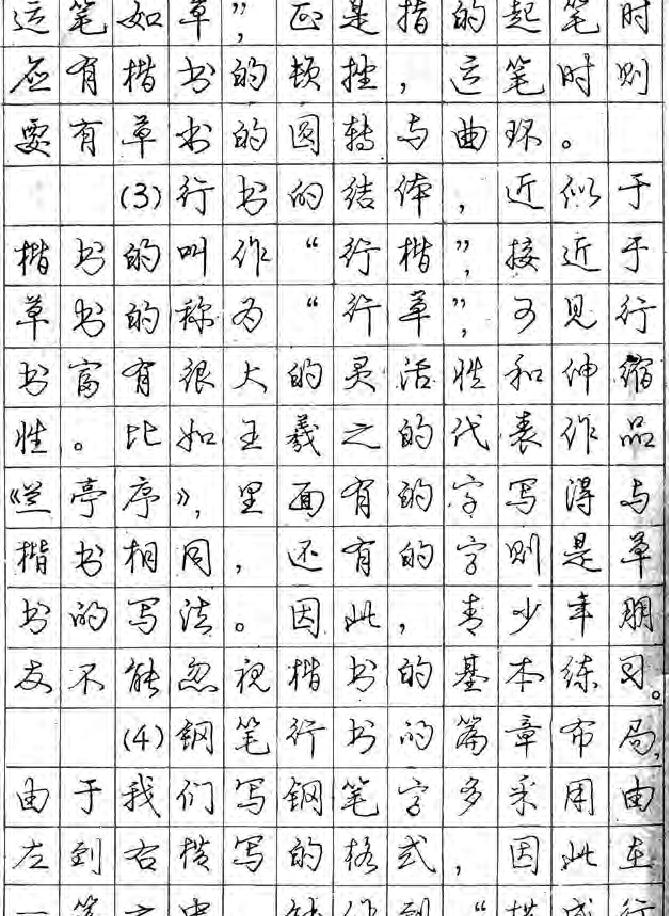 运笔如草”，正是指的起笔时
应有楷书的顿挫，运笔时则
要有草书的圆转与曲环。
(3)行书的结体，近似于
楷书的叫作“行楷”，接近于
草书的称为“行草”，可见行
书富有很大的灵活性和伸缩
性。比如王羲之的代表作品
《兰亭序》，里面有的字写得与
楷书相同，还有的字则是草
书的写法。因此，青少年朋
友不能忽视楷书的基本练习。
(4)钢笔行书的篇章布局，
由于我们写钢笔字多采用由
左到右横写的格式，因此在